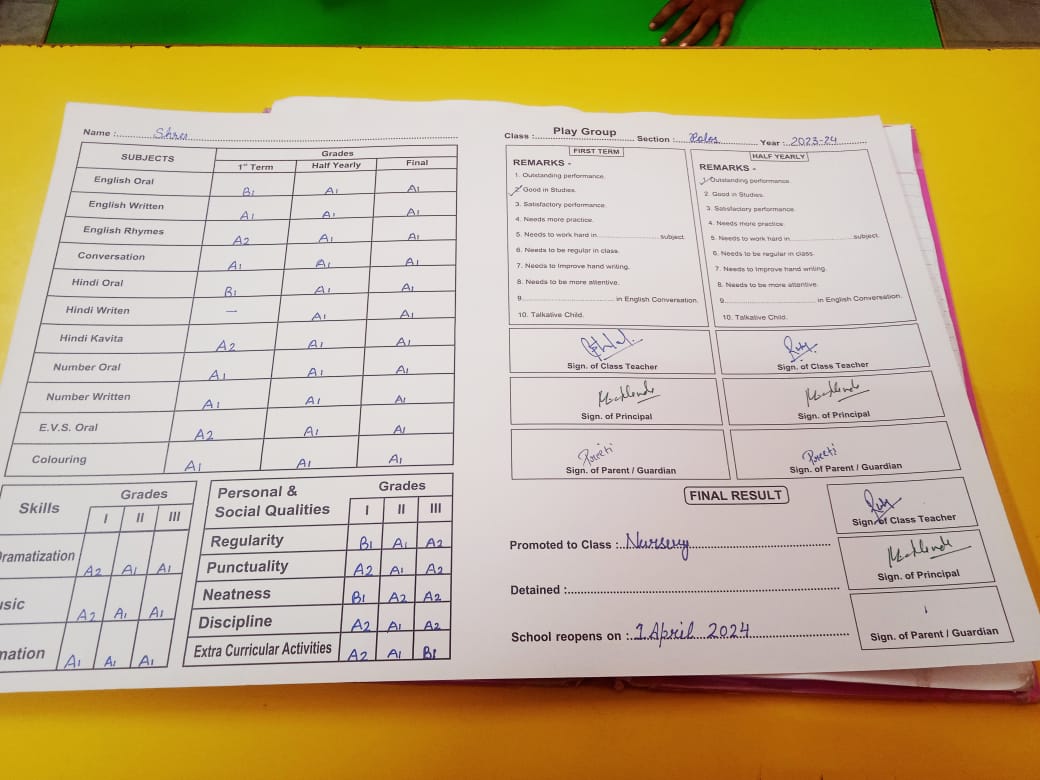 Name :
SUBJECTS Grades
1st Term Half Yearly Final
English Oral B1 A1 A1
English Written A1 A1 A1
English Rhymes A2 A1 A1
Conversation A1 A1 A1
Hindi Oral B1 A1 A1
Hindi Writen — A1 A1
Hindi Kavita A2 A1 A1
Number Oral A1 A1 A1
Number Written A1 A1 A1
E.V.S. Oral A2 A1 A1
Colouring A1 A1 A1
Skills Grades
I II III
Dramatization A2 A1 A1
usic A2 A1 A1
nation A1 A1 A1
Personal & Social Qualities Grades
I II III
Regularity B1 A1 A2
Punctuality A2 A1 A2
Neatness B1 A2 A2
Discipline A2 A1 A2
Extra Curricular Activities A2 A1 B1
Class : Play Group Section : Year : 2023-24
FIRST TERM
REMARKS -
1. Outstanding performance.
2. Good in Studies.
3. Satisfactory performance.
4. Needs more practice.
5. Needs to work hard in subject.
6. Needs to be regular in class.
7. Needs to Improve hand writing.
8. Needs to be more attentive.
9. in English Conversation.
10. Talkative Child.
Sign. of Class Teacher
Sign. of Principal
Preeti
Sign. of Parent / Guardian
HALF YEARLY
REMARKS -
1. Outstanding performance.
2. Good in Studies.
3. Satisfactory performance.
4. Needs more practice.
5. Needs to work hard in subject.
6. Needs to be regular in class.
7. Needs to Improve hand writing.
8. Needs to be more attentive.
9. in English Conversation.
10. Talkative Child.
Sign. of Class Teacher
Sign. of Principal
Preeti
Sign. of Parent / Guardian
FINAL RESULT
Promoted to Class : Nursery
Detained :
School reopens on : 1 April 2024
Sign. of Class Teacher
Sign. of Principal
Sign. of Parent / Guardian